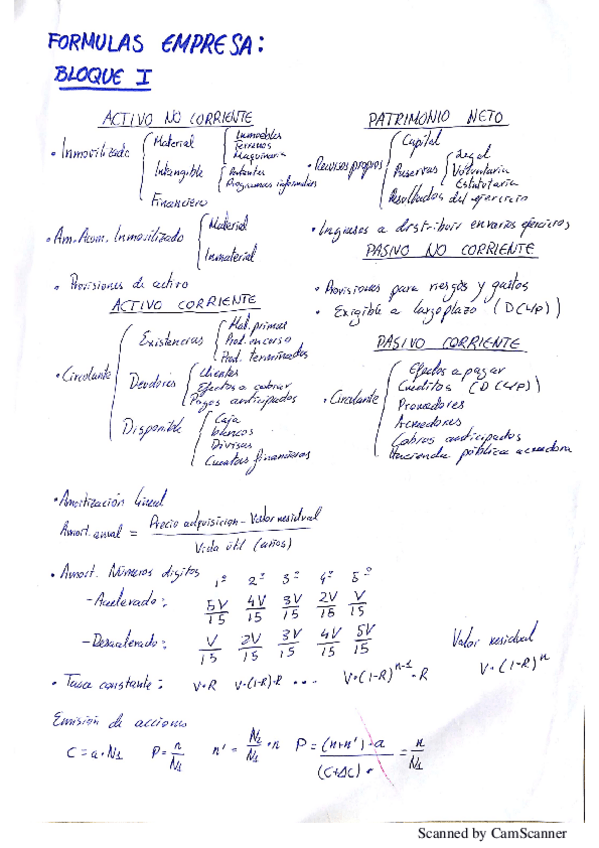 FORMULAS EMPRESA:
BLOQUE I
ACTIVO NO CORRIENTE
• Inmovilizado
Material
Inmuebles
Terrenos
Maquinaria
Intangible
Patentes
Programas informatic
Financiero
• Am. Acum. Inmovilizado
Material
Inmaterial
• Provisiones de activo
ACTIVO CORRIENTE
• Circulante
Existencias
Mat. primas
Prod. en curso
Prod. terminados
Deudores
Clientes
Efectos a cobrar
Pagos anticipados
Disponible
Caja
Bancos
Divisas
Cuentas financieras
PATRIMONIO NETO
• Recursos propios
Capital
Reservas
Legal
Voluntaria
Estatutaria
Resultados del ejercicio
• Ingresos a distribuir en varios ejercicios
PASIVO NO CORRIENTE
• Provisiones para riesgos y gastos
• Exigible a largo plazo (DCL/P)
PASIVO CORRIENTE
• Circulante
Efectos a pagar
Creditos (DCL/P)
Proveedores
Acreedores
Cobros anticipados
Hacienda pública acreedora
• Amortización lineal
Amort. anual = Precio adquisicion - Valor residual / Vida útil (años)
• Amort. Números digitos 1º 2º 3º 4º 5º
- Acelerado: 5V/15 4V/15 3V/15 2V/15 V/15
- Desacelerado: V/15 2V/15 3V/15 4V/15 5V/15
Valor residual
• Tasa constante: V·R V·(1-R)·R ... V·(1-R)^n-1·R V·(1-R)^n
Emisión de acciones
C = a·N1 P = n/N1 n' = N2/N1·n P = (n+n')·a/(C+ΔC)· = n/N1
Scanned by CamScanner